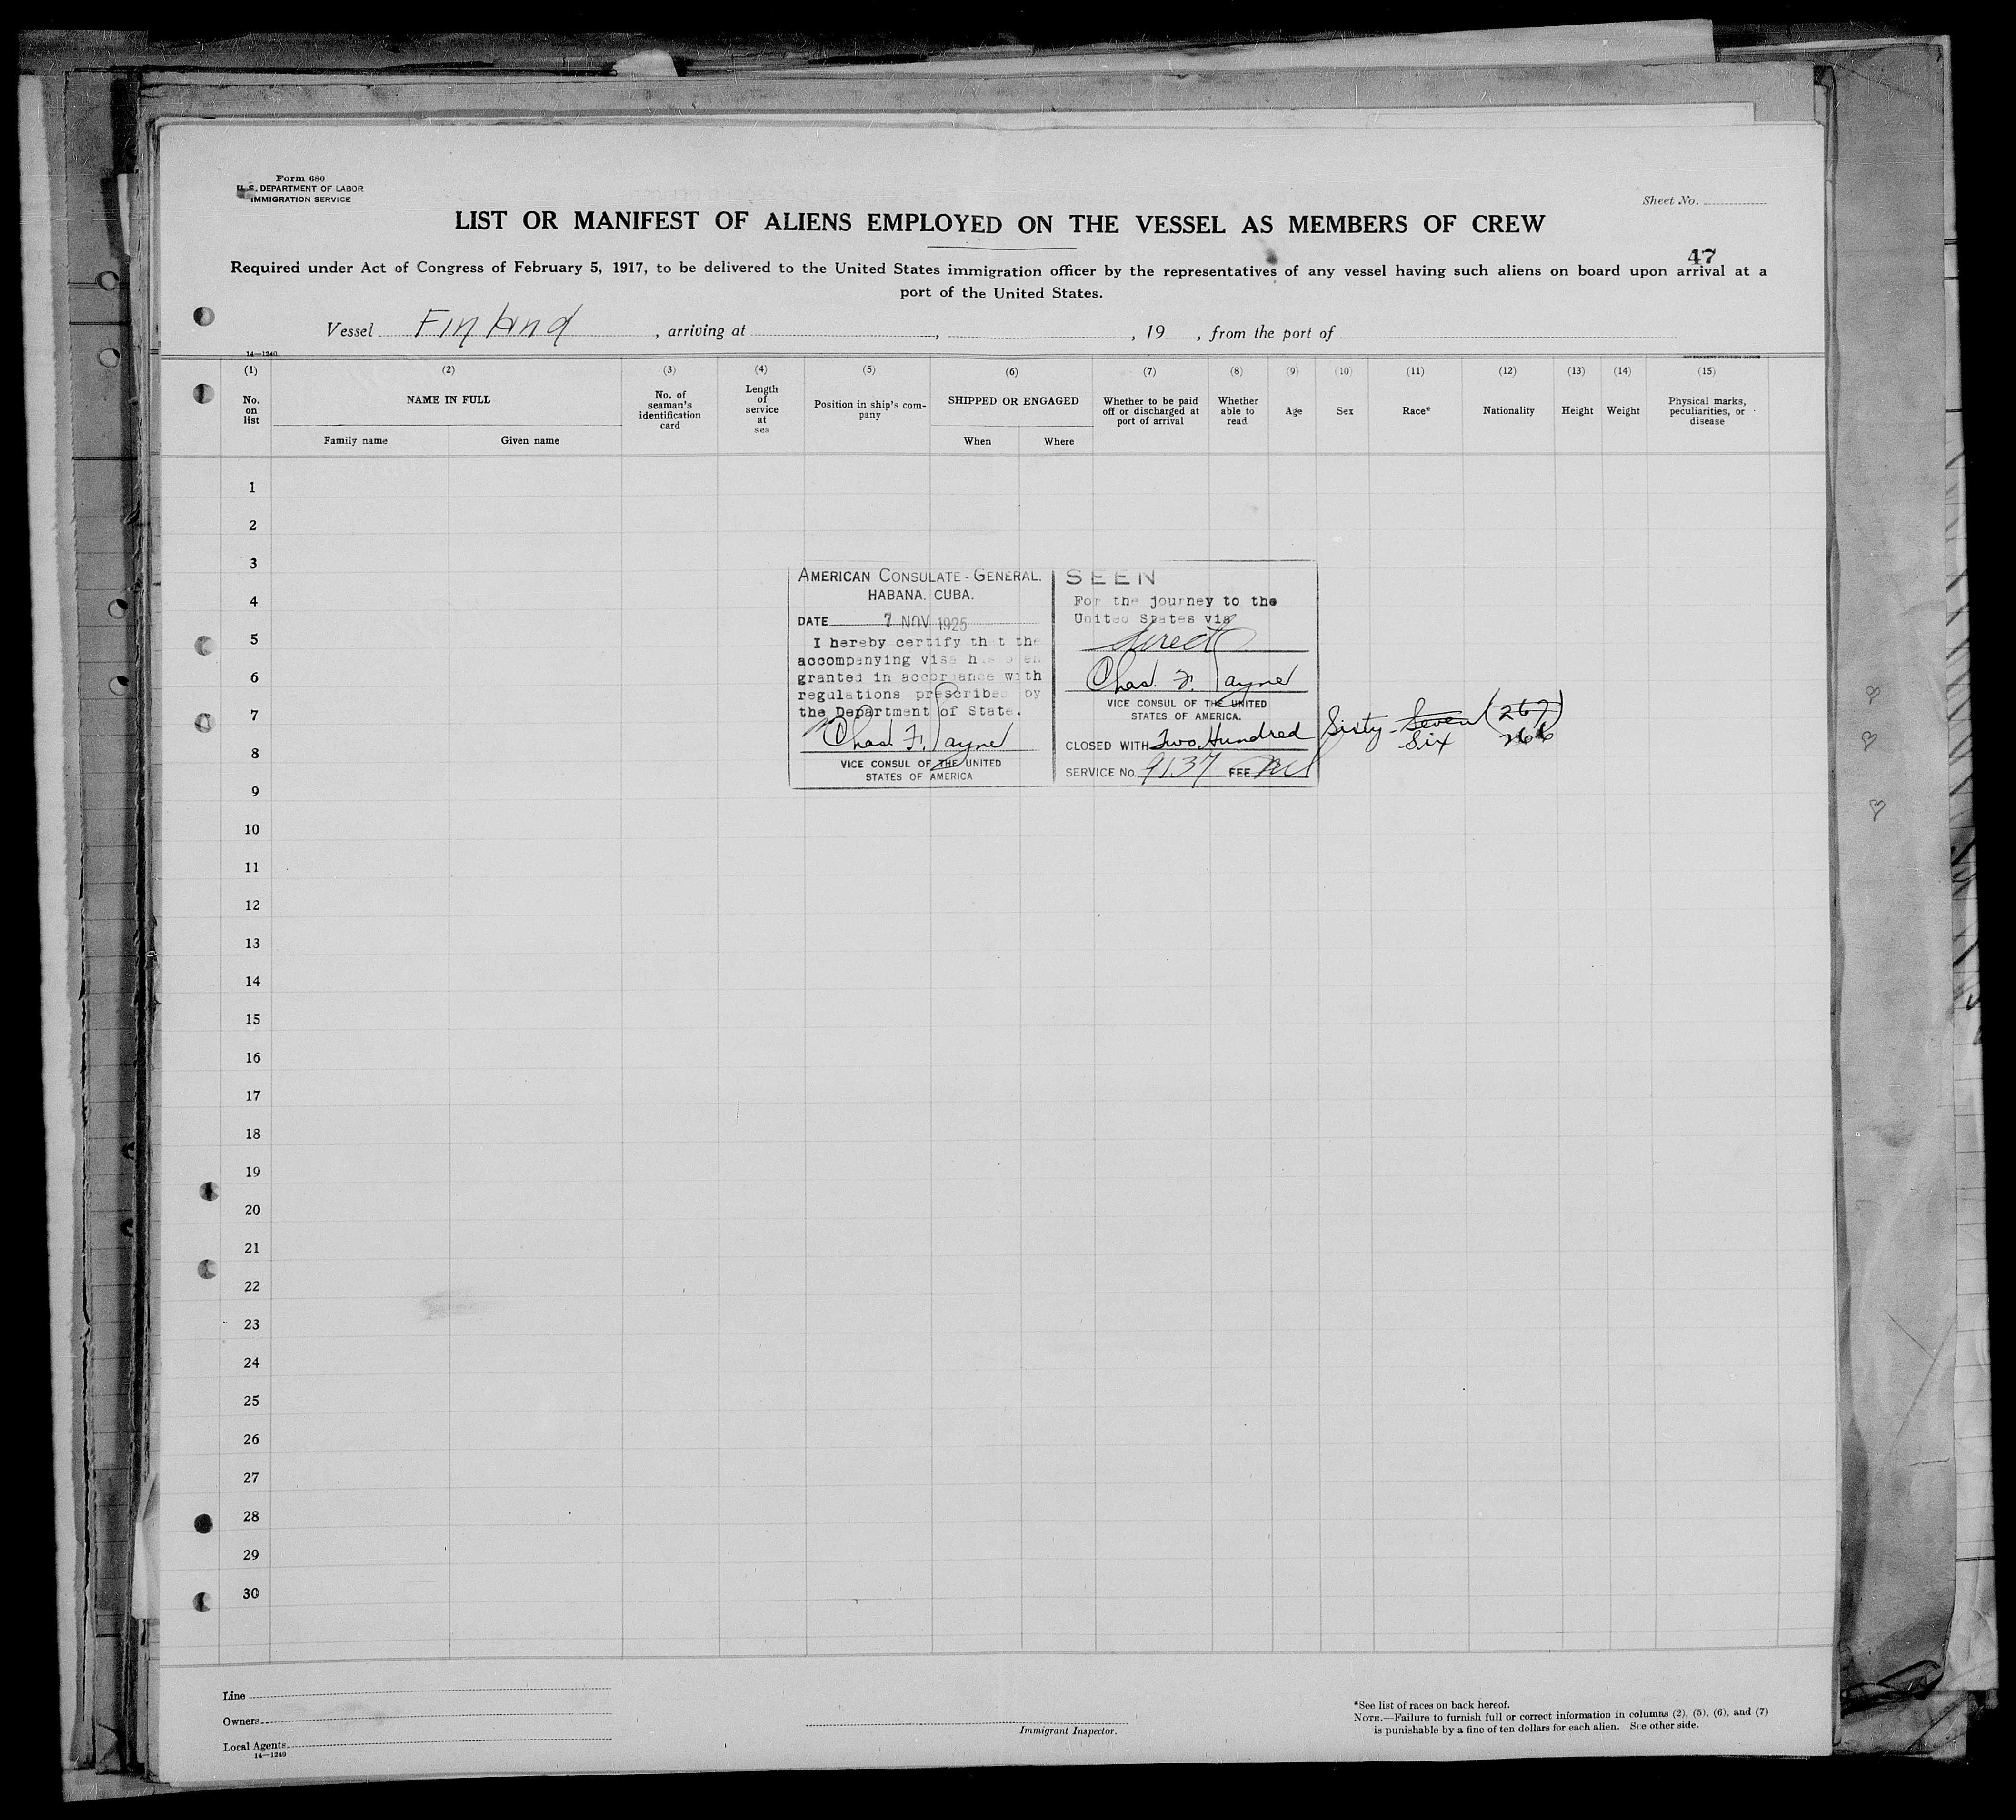 Form 680
U. S. DEPARTMENT OF LABOR
IMMIGRATION SERVICE
Sheet No.
LIST OR MANIFEST OF ALIENS EMPLOYED ON THE VESSEL AS MEMBERS OF CREW
47
Required under Act of Congress of February 5, 1917, to be delivered to the United States immigration officer by the representatives of any vessel having such aliens on board upon arrival at a
port of the United States.
Vessel Finland, arriving at , , 19 , from the port of
14—1240
(1) (2) (3) (4) (5) (6) (7) (8) (9) (10) (11) (12) (13) (14) (15)
No. on list
NAME IN FULL
Family name Given name
No. of seaman's identification card
Length of service at sea
Position in ship's company
SHIPPED OR ENGAGED
When Where
Whether to be paid off or discharged at port of arrival
Whether able to read
Age
Sex
Race*
Nationality
Height
Weight
Physical marks, peculiarities, or disease
1
2
3
4
5
6
7
8
9
10
11
12
13
14
15
16
17
18
19
20
21
22
23
24
25
26
27
28
29
30
AMERICAN CONSULATE-GENERAL.
HABANA. CUBA.
DATE 7 NOV 1925
I hereby certify that the
accompanying visa has been
granted in accordance with
regulations prescribed by
the Department of State.
Chas. F. Payne
VICE CONSUL OF THE UNITED
STATES OF AMERICA
SEEN
For the journey to the
United States via
direct
Chas. F. Payne
VICE CONSUL OF THE UNITED
STATES OF AMERICA.
CLOSED WITH Two Hundred Sixty-Seven (267)
Six 266
SERVICE No. 9137 FEE Nil
Line
Owners
Local Agents
14—1240
Immigrant Inspector.
*See list of races on back hereof.
NOTE.—Failure to furnish full or correct information in columns (2), (5), (6), and (7)
is punishable by a fine of ten dollars for each alien. See other side.